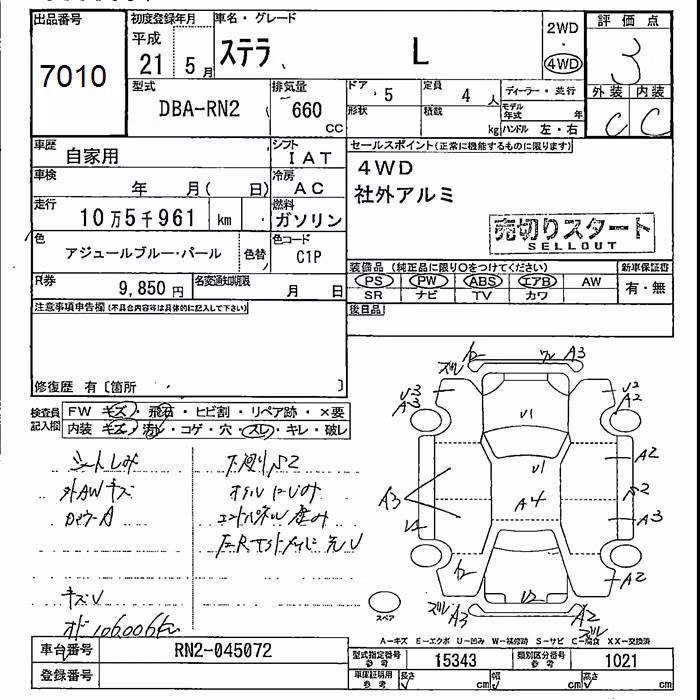 出品番号
7010
初度登録年月
平成 21年 5月
車名・グレード
ステラ L
2WD
・
4WD
評価点
3
型式
DBA-RN2
排気量
660 CC
ドア 5
定員 4人
形状
積載 kg
ディーラー・並行
モデル年式 年
ハンドル 左・右
外装 内装
C C
車歴
自家用
シフト
IAT
車検
年 月( 日)
冷房
AC
走行
10万5千961 km
燃料
ガソリン
色
アジュールブルー・パール
色替
色コード
C1P
R券
9,850円
名変通知期限
月 日
セールスポイント(正常に機能するものに限ります)
4WD
社外アルミ
売切りスタート
SELLOUT
装備品(純正品に限り○をつけてください)
PS PW ABS エアB AW
SR ナビ TV カワ
新車保証書
有・無
後日品
注意事項申告欄(不具合内容等は具体的に記入して下さい)
修復歴 有〔箇所 〕
検査員記入欄
FW キズ・飛石・ヒビ割・リペア跡・×要
内装 キズ・汚れ・コゲ・穴・スレ・キレ・破レ
シートしみ
外AWキズ
下廻りS2
オイルにじみ
キズU
オド106006km
ズレ
A3
U3
A3
U2
A2
U1
U1
A2
A3
A4
A2
A3
U2
A2
ズレ
A3
A2
ズレ
スペア
A-キズ E-エクボ U-凹み W-補修跡 S-サビ C-腐食 XX-交換済
車台番号
RN2-045072
登録番号
型式指定番号 参考
15343
類別区分番号 参考
1021
車庫証明用 参考
長さ cm 幅 cm 高さ cm